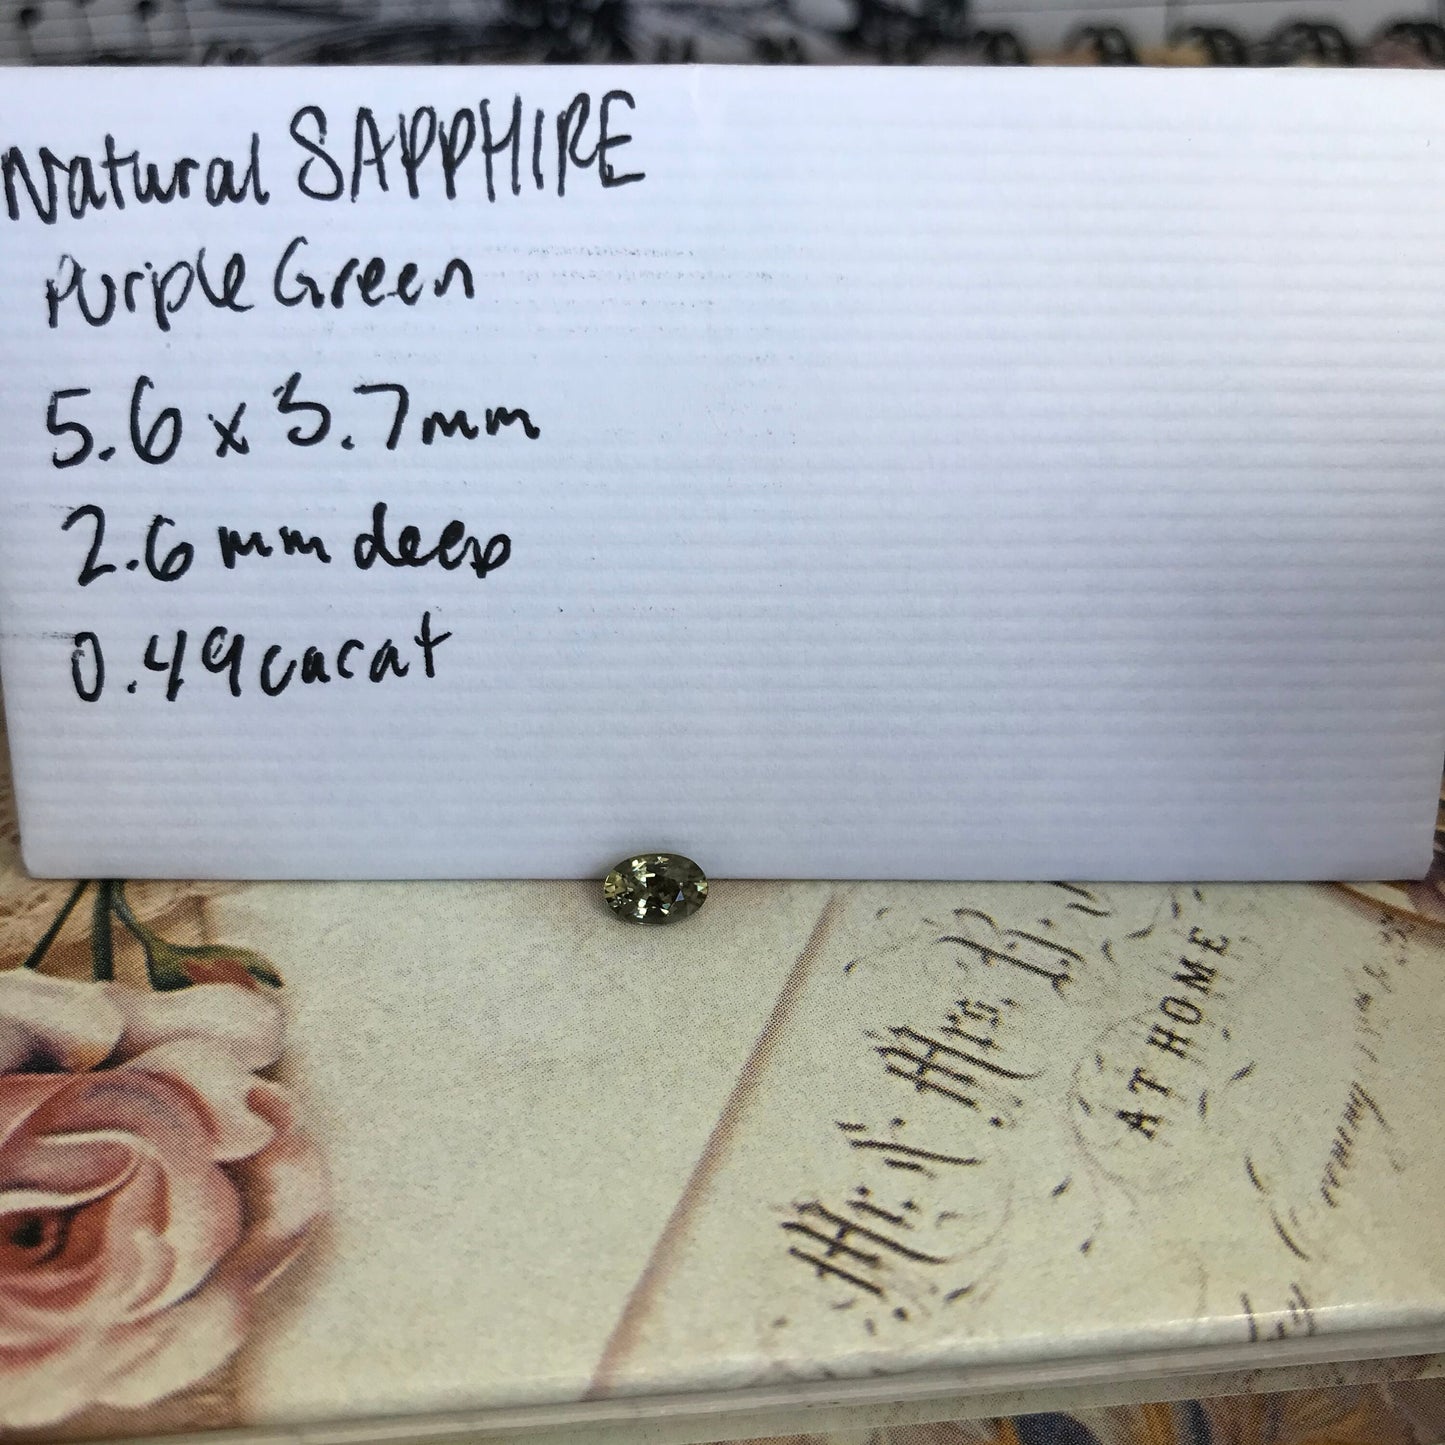 Natural SAPPHIRE
Purple Green
5.6 x 3.7mm
2.6mm deep
0.49 carat
Mr. & Mrs.
AT HOME